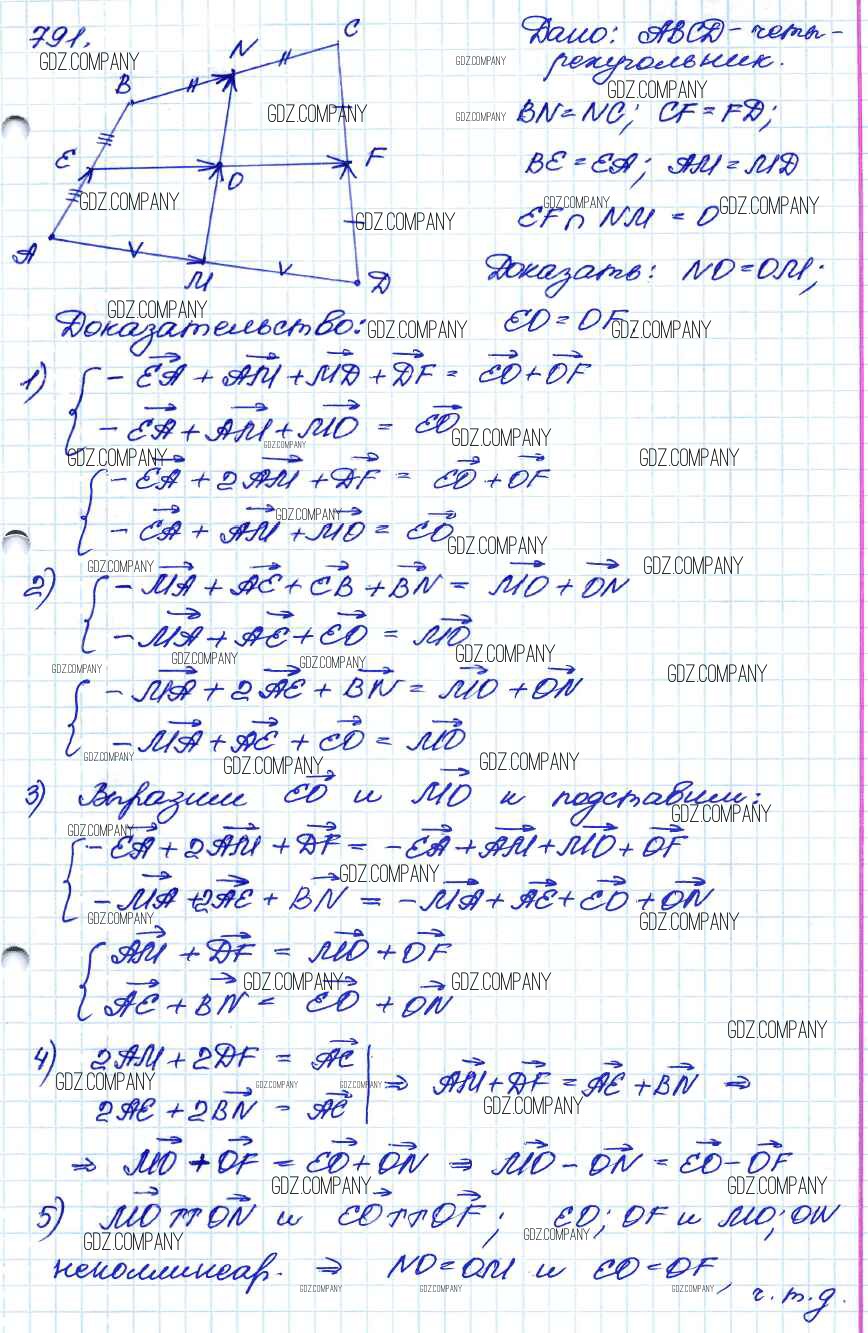 791.
N
C
B
E
O
F
A
M
D
Дано: ABCD - четы-
рехугольник.
BN = NC; CF = FD;
BE = EA; AM = MD
EF ∩ NM = O
Доказать: NO = OM;
EO = OF.
Доказательство:
1) { - EA + AM + MD + DF = EO + OF
- EA + AM + MO = EO
{ - EA + 2AM + DF = EO + OF
- EA + AM + MO = EO
2) { - MA + AE + EB + BN = MO + ON
- MA + AE + EO = MO
{ - MA + 2AE + BN = MO + ON
- MA + AE + EO = MO
3) Выразим EO и MO и подставим:
{ - EA + 2AM + DF = - EA + AM + MO + OF
- MA + 2AE + BN = - MA + AE + EO + ON
{ AM + DF = MO + OF
AE + BN = EO + ON
4) 2AM + 2DF = AC
2AE + 2BN = AC | ⇒ AM + DF = AE + BN ⇒
⇒ MO + OF = EO + ON ⇒ MO - ON = EO - OF
5) MO ↑↑ ON и EO ↑↑ OF; EO; OF и MO; ON
неколлинеар. ⇒ NO = OM и EO = OF,
ч.т.д.
GDZ.COMPANY